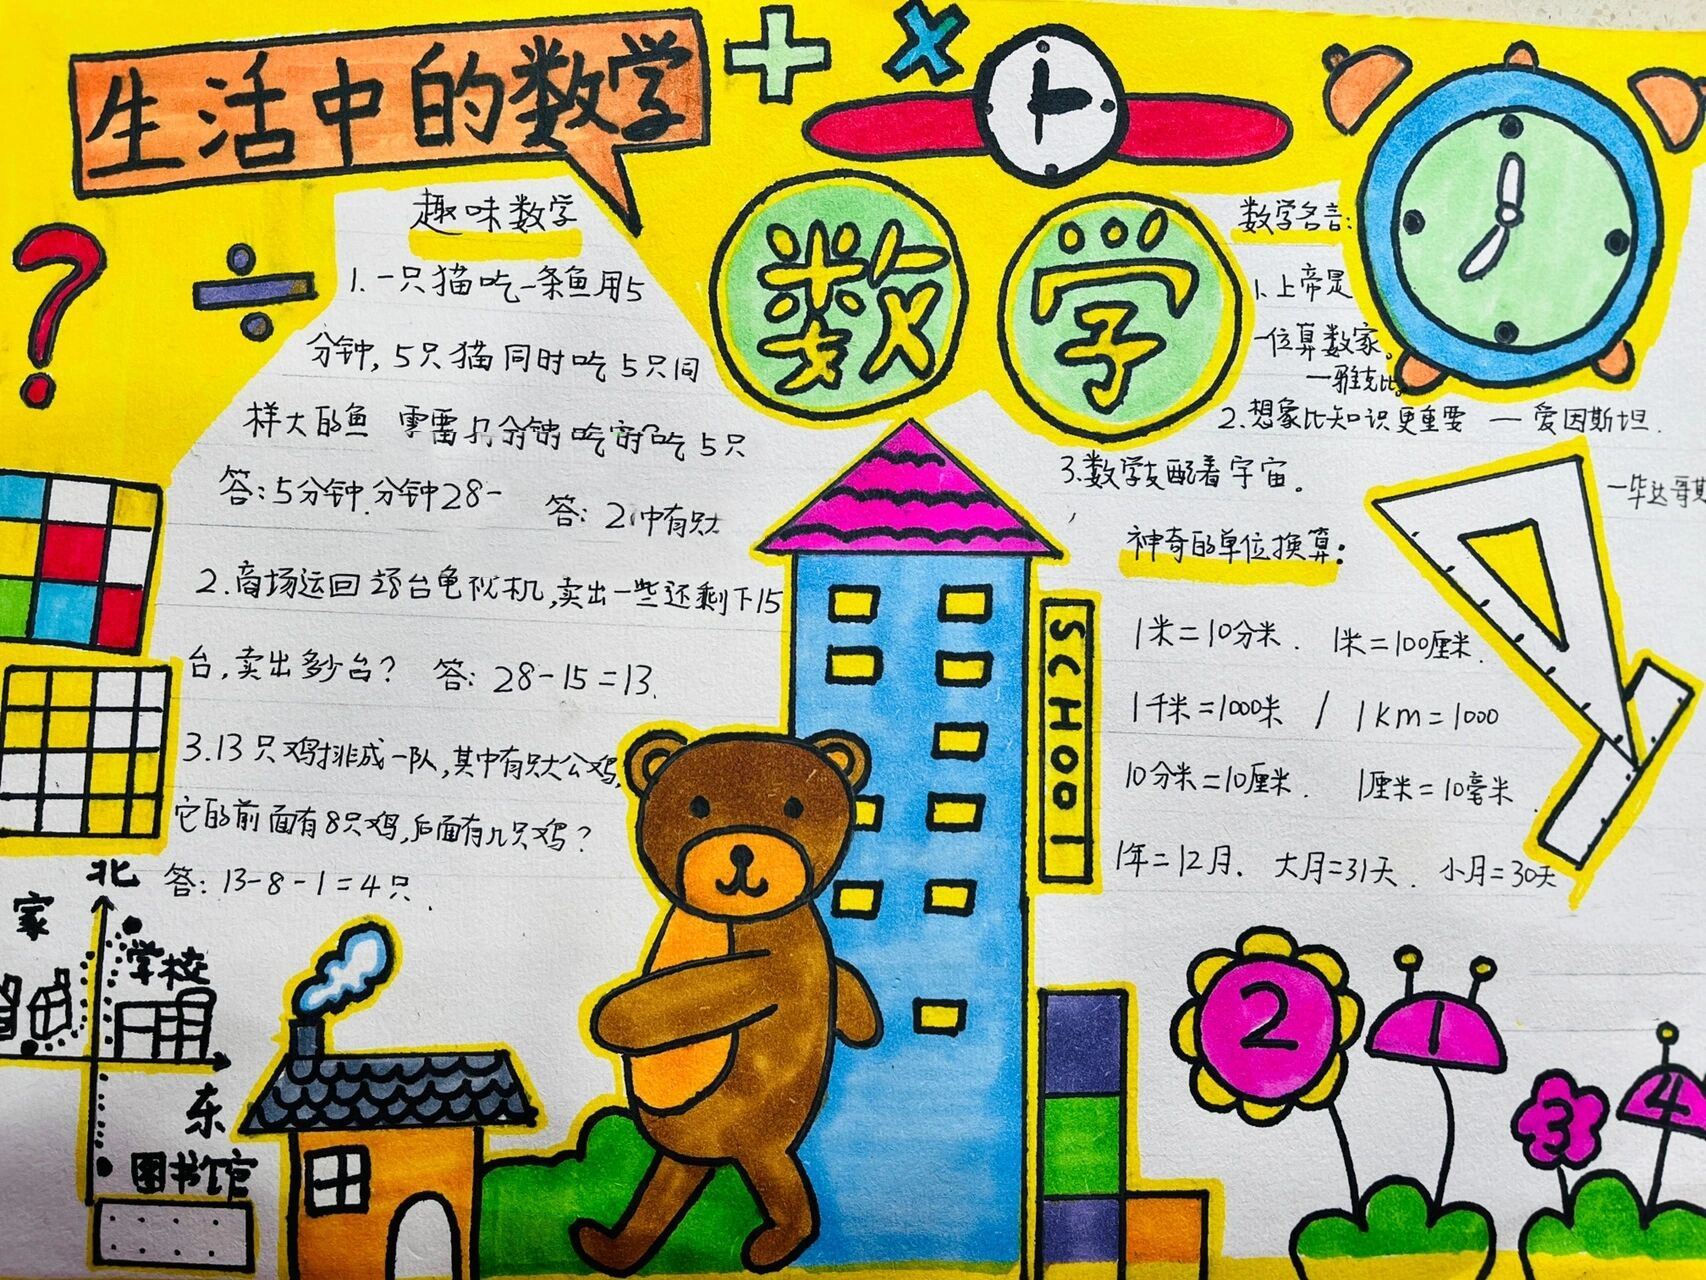 生活中的数学
数学
趣味数学
1.一只猫吃一条鱼用5
分钟,5只猫同时吃5只同
样大的鱼 吃5只
答:5分钟.分钟28- 答:2
2.商场运回 台 机,卖出一些还剩下15
台,卖出多少台? 答:28-15=13.
3.13只鸡排成一队,其中有只大公鸡,
它的前面有8只鸡,后面有几只鸡?
答:13-8-1=4只.
数学名言:
1.上帝是
一位算数家。
—雅克比。
2.想象比知识更重要 — 爱因斯坦.
3.数学支配着宇宙。
—毕达哥
神奇的单位换算:
1米=10分米. 1米=100厘米.
1千米=1000米 / 1km=1000
10分米=10厘米. 1厘米=10毫米
1年=12月. 大月=31天. 小月=30天
SCHOOl
北
家
学校
东
图书馆
2
1
3
4